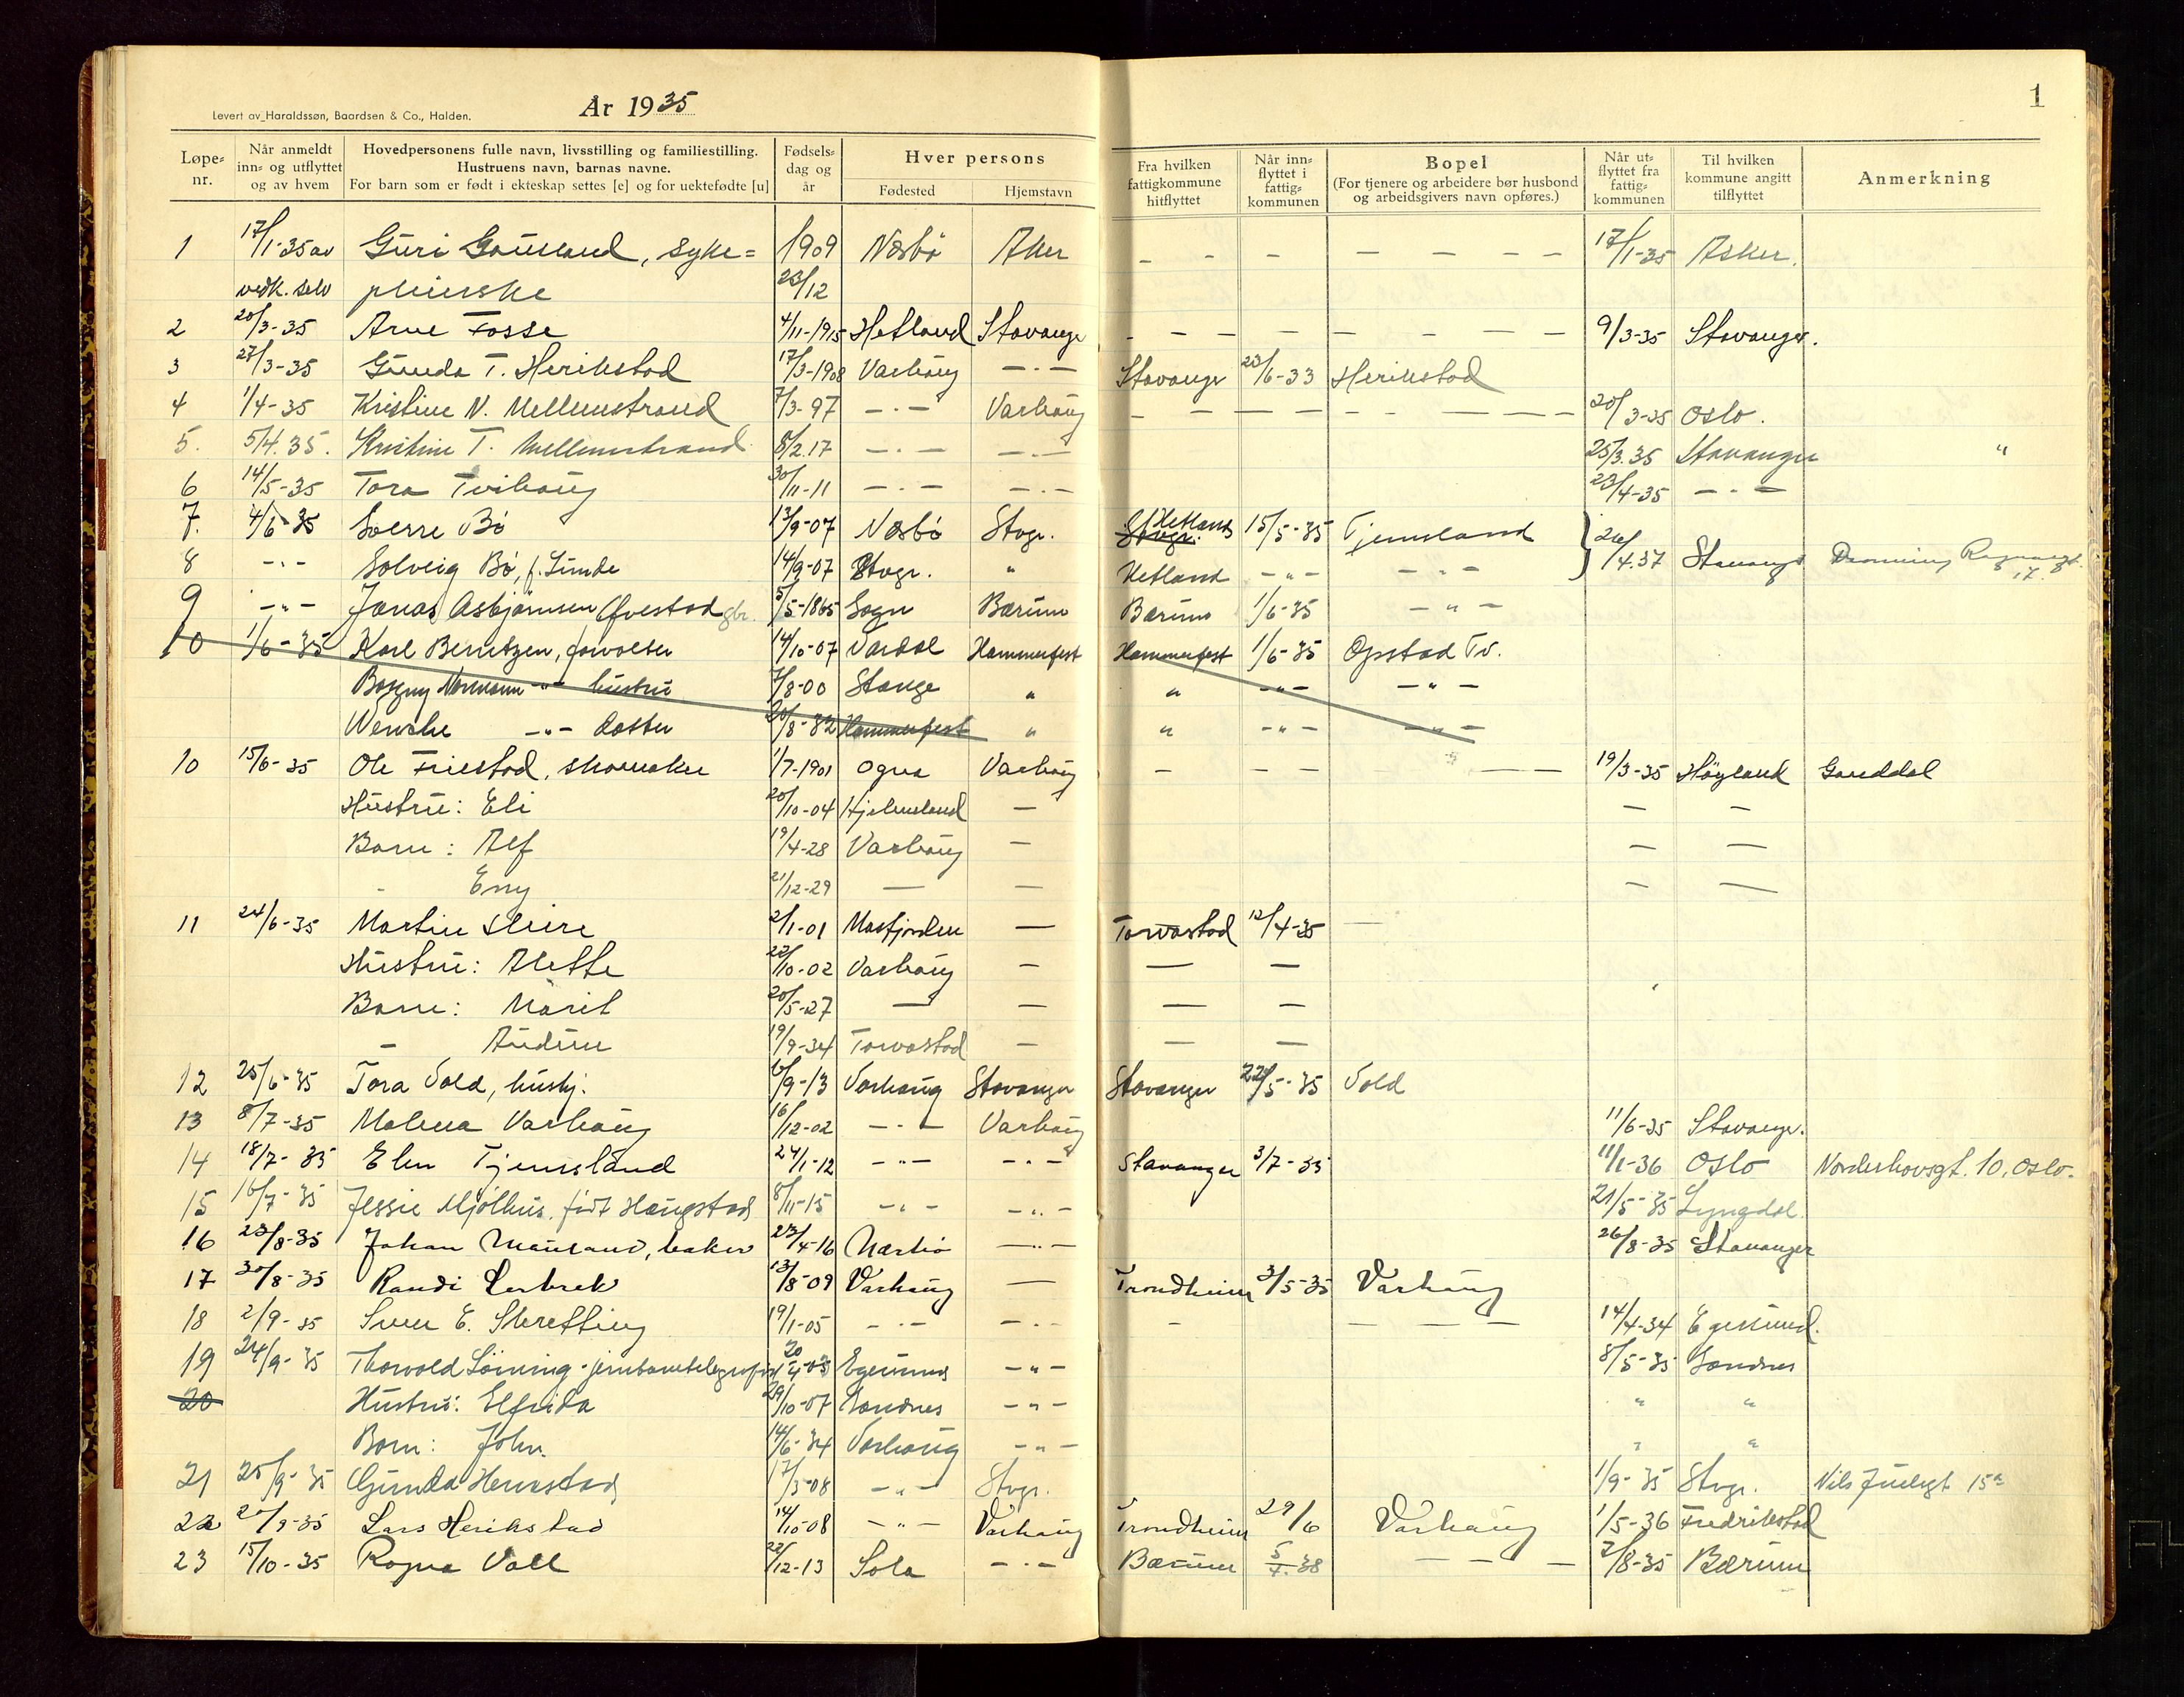 1
År 1935
Levert av Haraldssøn, Baardsen & Co., Halden.
Løpe-nr. Når anmeldt inn- og utflyttet og av hvem Hovedpersonens fulle navn, livsstilling og familiestilling. Hustruens navn, barnas navne. For barn som er født i ekteskap settes [e] og for uektefødte [u] Fødsels-dag og år Hver persons Fødested Hjemstavn Fra hvilken fattigkommune hitflyttet Når inn-flyttet i fattig-kommunen Bopel (For tjenere og arbeidere bør husbond og arbeidsgivers navn opføres.) Når ut-flyttet fra fattig-kommunen Til hvilken kommune angitt tilflyttet Anmerkning
1 17/1-35 av Guri , syke= 1909 Næsbø Aker - - - - - - - 17/1-35 Asker.
vedk. selv pleierske 23/12
2 20/3-35 Arne Fosse 4/11-1915 Hetland Stavanger - - - - - - - 9/3-35 Stavanger.
3 27/3-35 Gunda T. Herikstad 17/3-1908 Varhaug -.- Stavanger 23/6-33 Herikstad
4 1/4-35 Kristine N. Mellemstrand 7/3-97 -.- Varhaug - - - - - - - 20/3-35 Oslo.
5. 5/4.35. Kristine T. Mellemstrand 8/2.17 -.- -.- 25/3.35 Stavanger "
6 14/5-35 Tora Tvihaug 30/11-11 -.- -.- 23/4-35 -.-
7. 4/6-35 Sverre Bø 13/9-07 Næsbø Stvgr. Stvgr. Hetland 15/5-35 Tjemsland
8 -.- Solveig Bø, f. Lunde 14/9-07 Stvgr. " Hetland -"- -"- 26/4.37 Stavanger 17.
9 -"- Jonas Asbjørnsen Øvestad gbr. 5/5-1865 Sogn Bærum Bærum 1/6-35 -"-
10 1/6-35 Karl Berntzen, forvalter 14/10-07 Vardal Hammerfest Hammerfest 1/6-35 Opstad Tv.
Normann -"- hustru 7/8-00 Stange " " -"- -"-
Wenche -"- datter 20/8-32 Hammerfest " " -"- -"-
10 15/6-35 Ole Friestad, skomaker 1/7-1901 Ogna Varhaug - - - - - 19/3-35 Høyland Ganddal
Hustru: Eli 20/10-04 Hjelmeland - - -
Barn: Alf 19/4-28 Varhaug - - -
- Eny 21/12-29 - - - -
11 24/6-35 Martin Sleire 2/1-01 Masfjorden - Torvastad 12/4-35 -
Hustru: Alette 22/10-02 Varhaug - - -
Barn: Marit 20/5-27 - - - -
- Audun 19/9-34 Torvastad - - -
12 25/6-35 Tora Vold, hushj. 6/9-13 Varhaug Stavanger Stavanger 22/5-35 Vold
13 8/7-35 Malena Varhaug 16/12-02 -.- Varhaug 11/6-35 Stavanger.
14 18/7-35 Elen Tjemsland 24/1-12 -"- -"- Stavanger 3/7-35 11/1-36 Oslo Norderhovsgt. 10, Oslo.
15 16/7-35 Jessie Mjølhus, født Haugstad 8/11-15 -"- -"- 21/5-35 Lyngdal.
16 23/8-35 Johan , baker 23/4-16 Nærbø -"- 26/8-35 Stavanger
17 30/8-35 Randi Lerbrek 13/8-09 Varhaug - Trondheim 3/5-35 Varhaug
18 2/9-35 Sven E. Skretting 19/1-05 -.- -.- - - - - 14/4-34 Egersund.
19 24/9-35 Thorvald Løining - jernbanetelegrafist 20/4-03 Egersund -"- 8/5-35 Sandnes
20 Hustru: Elfrida 29/10-07 Sandnes -"- " "
Barn: John. 14/6-34 Varhaug -"- " "
21 25/9-35 Gunda Herikstad 17/3-08 -"- Stvgr. 1/9-35 Stvgr. Nils Juelsgt 15a
22 27/9-35 Lars Herikstad 14/10-08 -"- Varhaug Trondheim 29/6 Varhaug 1/5-36 Fredrikstad
23 15/10-35 Ragna Vall 22/12-13 Sola -.- Bærum 5/4.38 - - - 2/8-35 Bærum